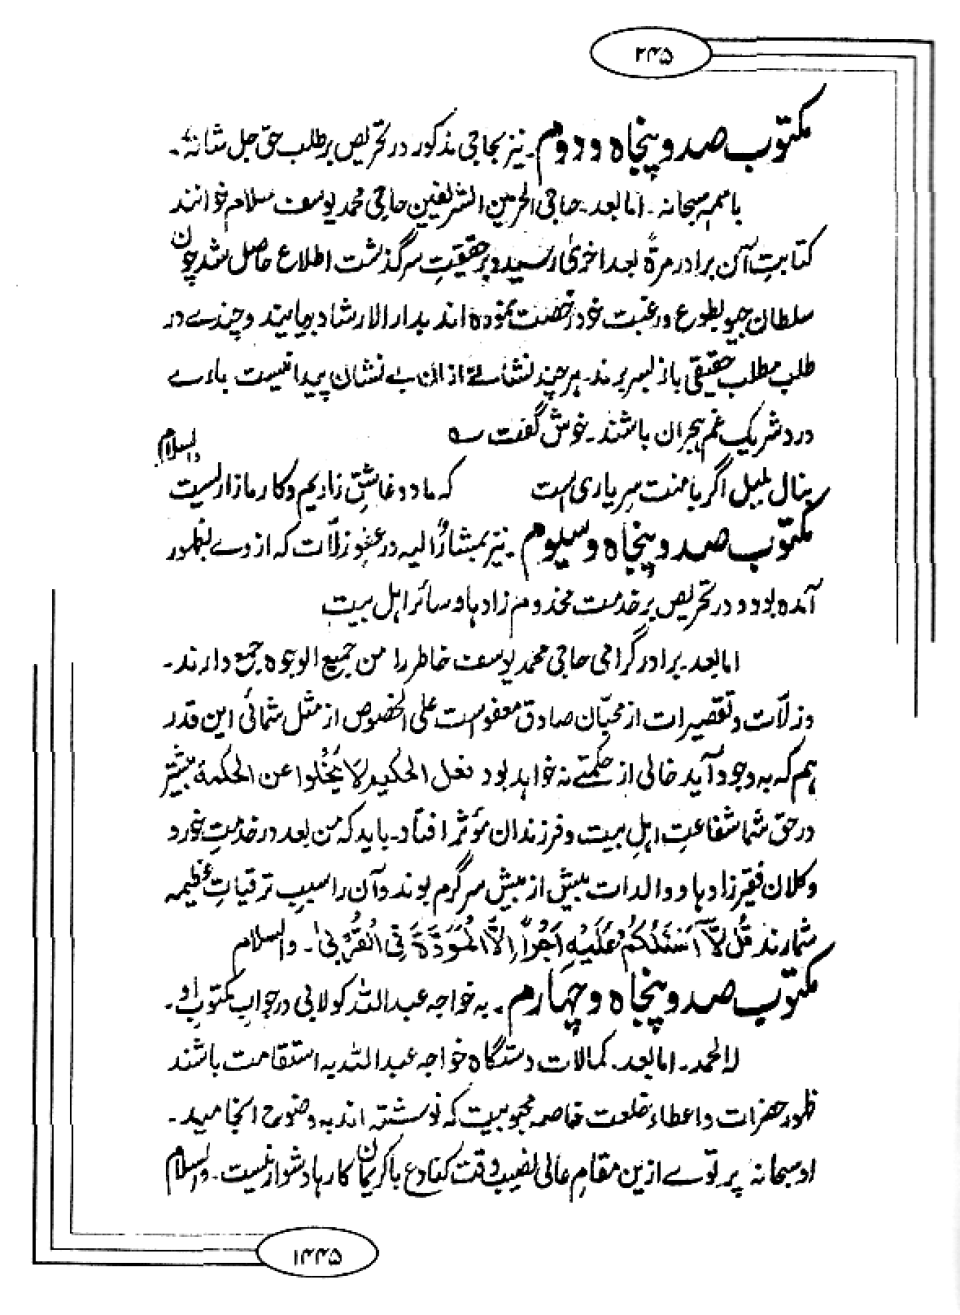 ۲۴۵
مکتوب صد و پنجاه و دوم۔ نیز بحاجی مذکور در تحریص بر طلب حق جل شانہ۔
باسمہ سبحانہ۔ اما بعد۔ حاجی الحرمین الشریفین حاجی محمد یوسف سلام خوانند
کتابتِ آن برادر مرةً بعد اخریٰ رسید و بر حقیقتِ سرگذشت اطلاع حاصل شد چون
سلطان جیو بطوع و رغبت خود رخصت نموده اند بدار الارشاد بیایند و چندے در
طلب مطلب حقیقی باز بسر برند۔ ہر چند نشانے از ان بے نشان پیدا نیست بارے
درد شریک غم ہجران باشند۔ خوش گفت ؎
والسلام
بنال بلبل اگر با منت سرِ یاری است که ما دو عاشق زاریم و کار ما زاریست
مکتوب صد و پنجاه و سیوم۔ نیز بمشارٌ الیه در عفوِ زلّات که از وے بظهور
آمده بود و در تحریص بر خدمت مخدوم زادہا و سائر اہل بیت
اما بعد۔ برادر گرامی حاجی محمد یوسف خاطر را من جمیع الوجوه جمع دارند۔
و زلّات و تقصیرات از محبّان صادق معفو ست علی الخصوص از مثل شمائی این قدر
ہم که به وجود آید خالی از حکمتے نه خواہد بود فعل الحکیم لَا یَخْلُوا عن الحکمة بیشتر
در حق شما شفاعتِ اہل بیت و فرزندان مؤثر افتاد۔ باید که من بعد در خدمتِ خورد
و کلان فقیر زادہا و والدات بیش از بیش سرگرم بوند و آن را سببِ ترقیاتِ عظیمه
شمارند قُل لَّآ اَسْئَلُکُمْ عَلَیْهِ اَجْرًا اِلَّا الْمَوَدَّةَ فِی الْقُرْبیٰ۔ والسلام
مکتوب صد و پنجاه و چہارم۔ به خواجه عبد اللہ کولابی در جواب مکتوب او۔
للہ الحمد۔ اما بعد۔ کمالات دستگاه خواجه عبد اللہ به استقامت باشند
ظہور حضرات و اعطاء خلعت خاصه محبوبیت که نوشته اند به وضوح انجامید۔
او سبحانہ پرتوے ازین مقامِ عالی نصیب وقت کناد ع با کریمان کارہا دشوار نیست۔ والسلام
۱۴۴۵